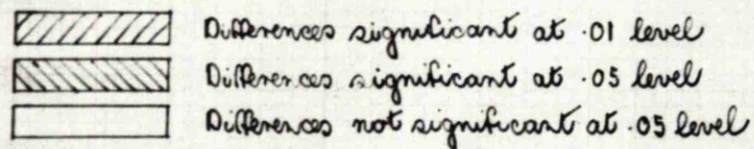 Differences significant at .01 level
Differences significant at .05 level
Differences not significant at .05 level